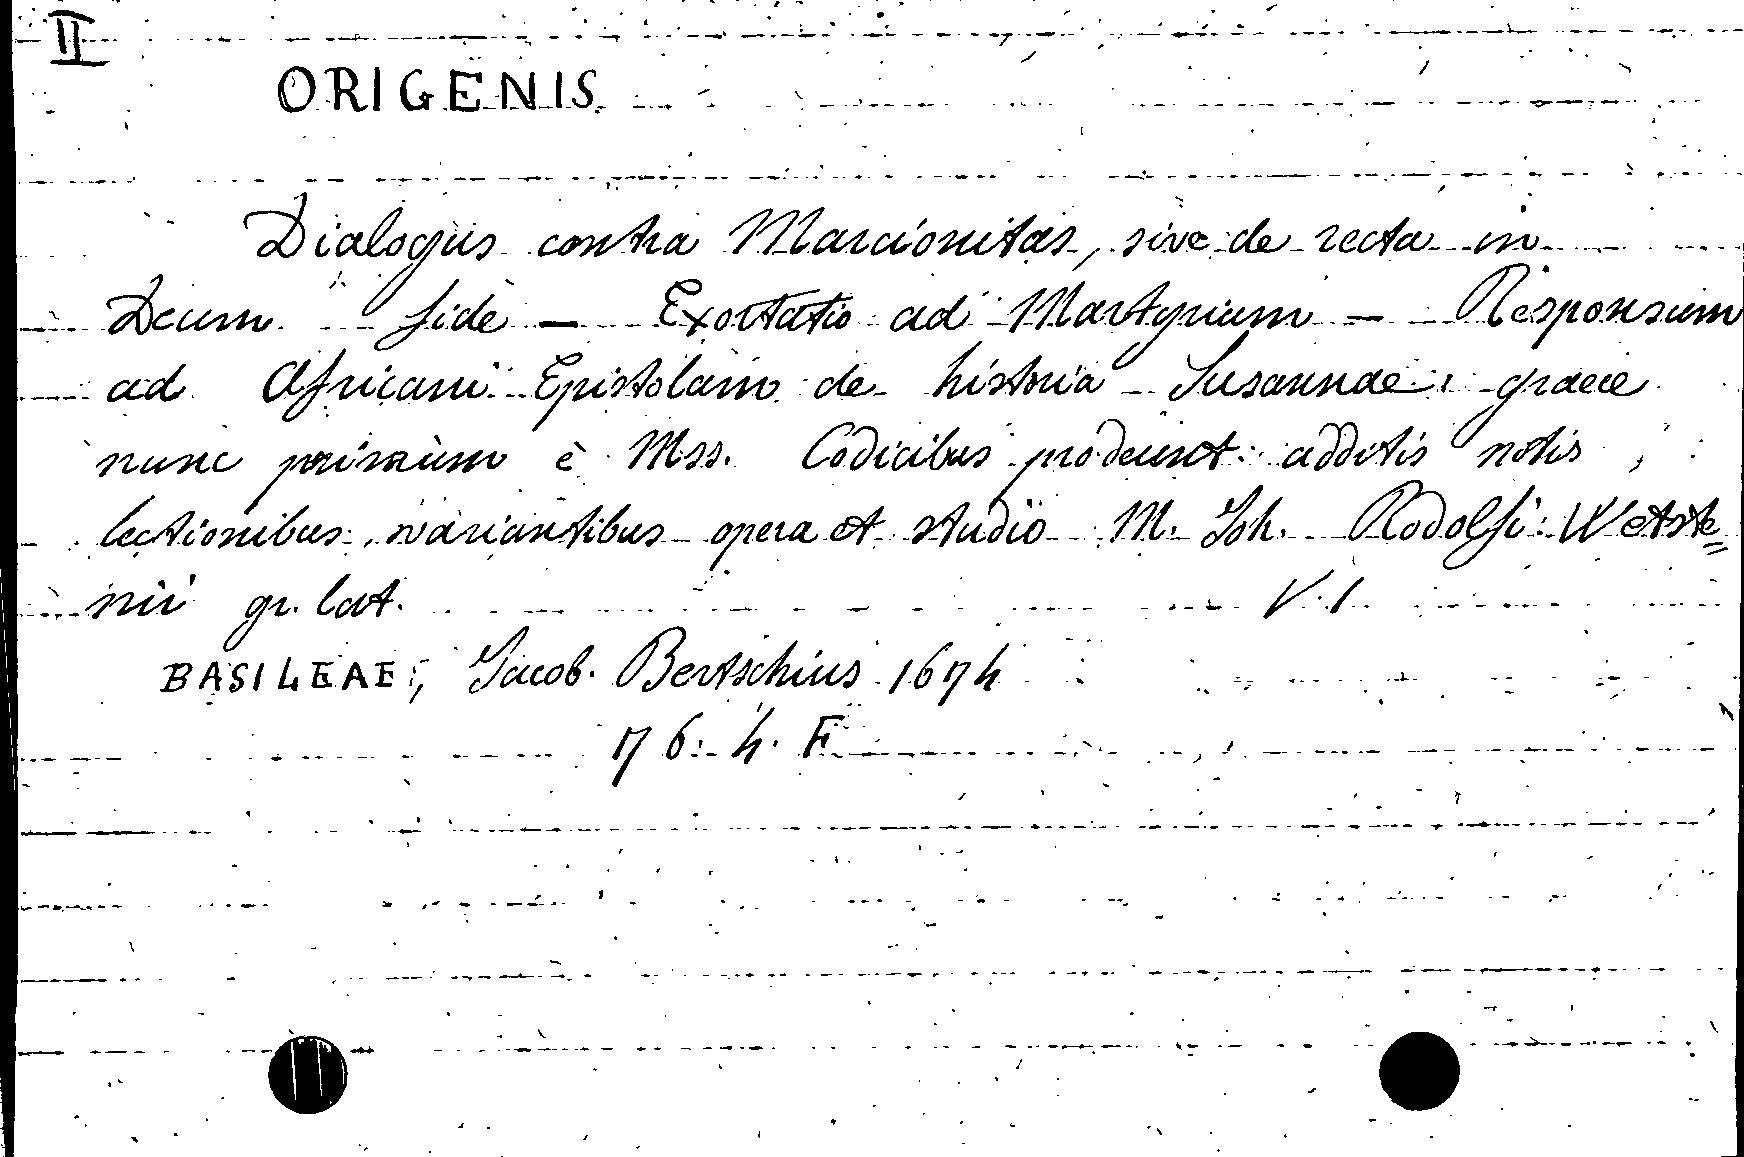 II
ORIGENIS
Dialogus contra Marcionitas, sive de recta in
Deum fide — Exortatio ad Martyrium — Responsum
ad Africani Epistolam de historia Susannae graece
nunc primum è Mss. Codicibus prodeunt additis notis,
lectionibus variantibus opera et studio M. Joh. Rodolfi Wetste=
nii gr. lat. V. 1
BASILEAE, Jacob. Bertschius 1674
76. 4. F